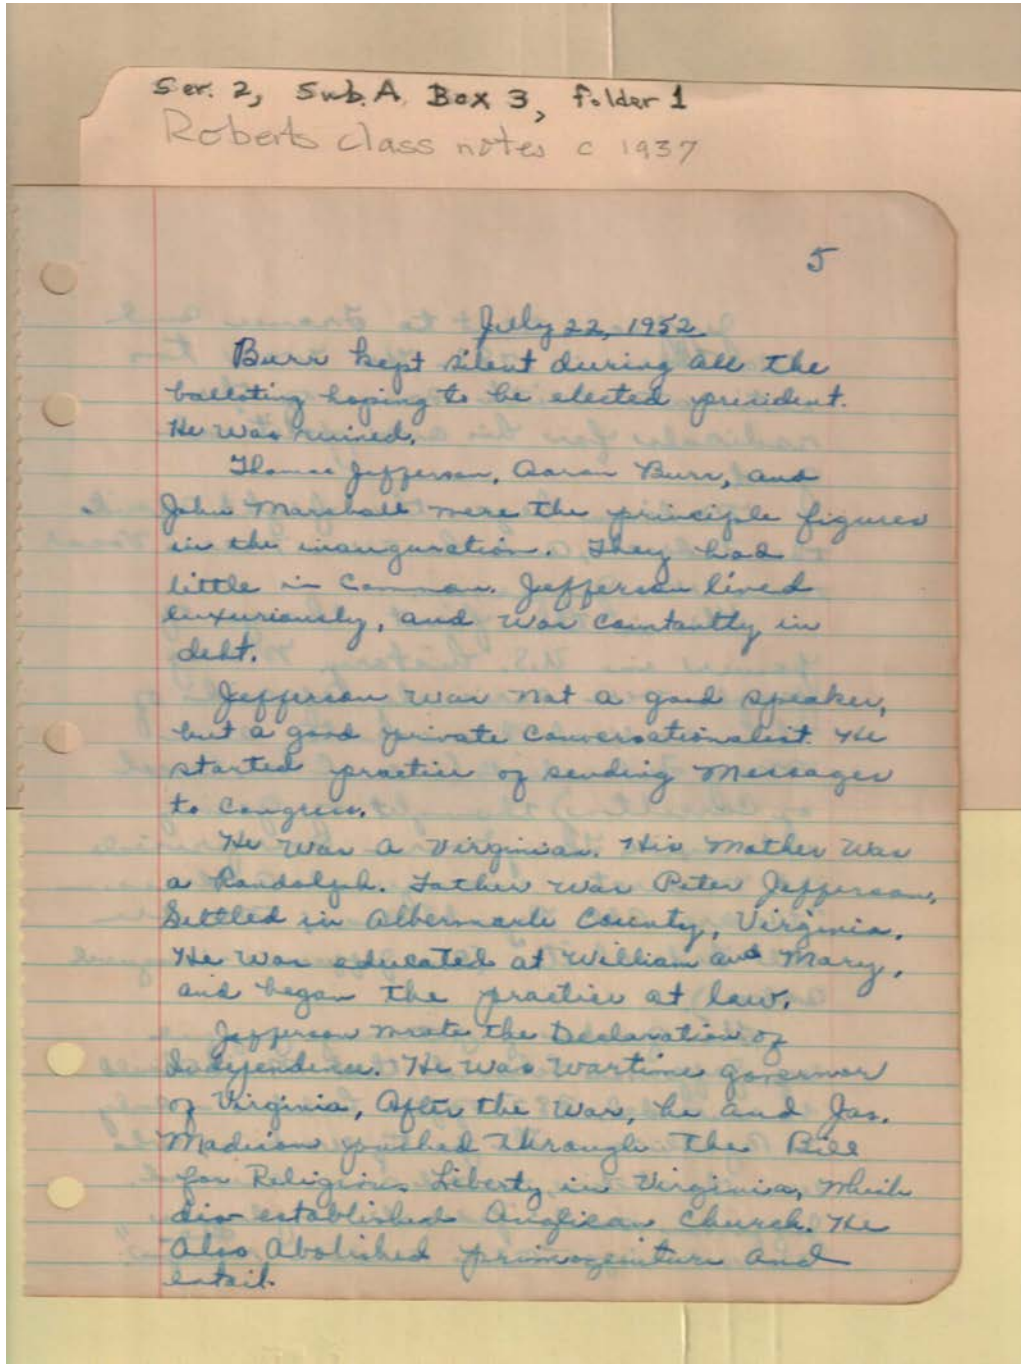 Ser. 2, Sub. A, Box 3, folder 1
Roberts class notes c 1937
5
July 22, 1952
Burr kept silent during all the
balloting hoping to be elected president.
He was ruined.
Thomas Jefferson, Aaron Burr, and
John Marshall were the principle figures
in the inauguration. They had
little in common. Jefferson lived
luxuriously, and was constantly in
debt.
Jefferson was not a good speaker,
but a good private conversationalist. He
started practice of sending messages
to Congress.
He was a Virginian. His mother was
a Randolph. Father was Peter Jefferson,
Settled in Albermarle County, Virginia.
He was educated at William and Mary,
and began the practice at law.
Jefferson wrote the Declaration of
Independence. He was wartime governor
of Virginia, After the War, he and Jas.
Madison pushed through the Bill
for Religious Liberty in Virginia, which
dis established Anglican Church. He
also abolished primogeniture and
entail.